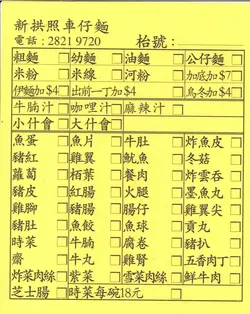 新拱照車仔麵
電話:2821 9720 枱號:
粗麵 幼麵 油麵 公仔麵
米粉 米線 河粉 加底加$7
伊麵加$4 出前一丁加$4 烏冬加$4
牛腩汁 咖哩汁 麻辣汁
小什會 大什會
魚蛋 魚片 牛肚 炸魚皮
豬紅 雞翼 魷魚 冬菇
蘿蔔 栢葉 餐肉 炸雲吞
豬皮 紅腸 火腿 墨魚丸
雞腳 豬腸 腸仔 雞翼尖
豬肚 魚餃 魚球 貢丸
時菜 牛腩 腐卷 豬扒
齋 牛丸 雞腎 五香肉丁
炸菜肉絲 紫菜 雪菜肉絲 鮮牛肉
芝士腸 時菜每碗18元